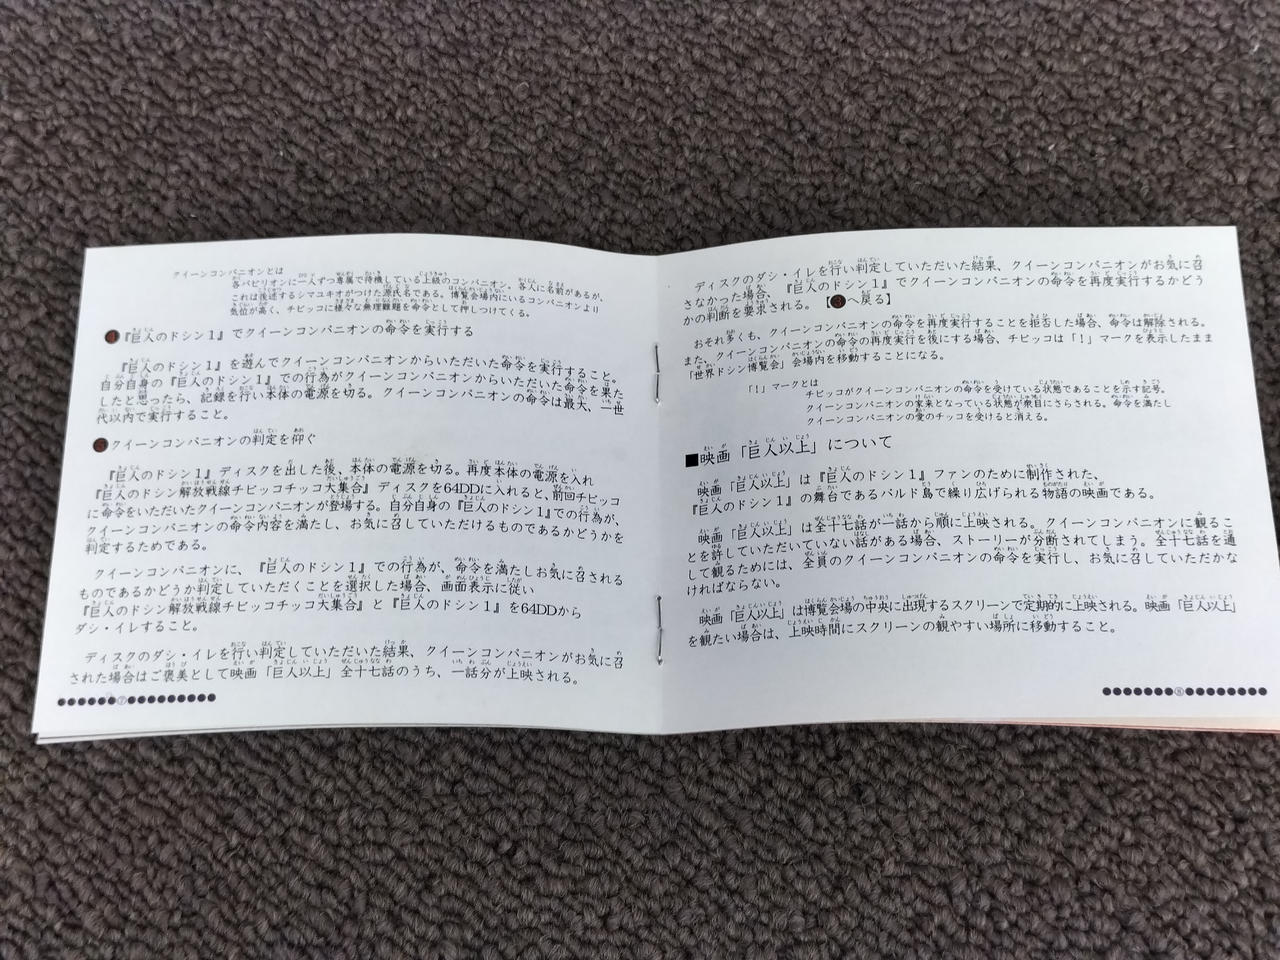 クイーンコンパニオンとは
各パビリオンに一人ずつ専属で待機している上級のコンパニオン。各人に名前があるが、
これは後述するシマユキオがつけた源氏名である。博覧会場内にいるコンパニオンより
気位が高く、チビッコに様々な無理難題を命令として押しつけてくる。
❹『巨人のドシン１』でクイーンコンパニオンの命令を実行する
『巨人のドシン１』を遊んでクイーンコンパニオンからいただいた命令を実行すること。
自分自身の『巨人のドシン１』での行為がクイーンコンパニオンからいただいた命令を果た
したと思ったら、記録を行い本体の電源を切る。クイーンコンパニオンの命令は最大、一世
代以内で実行すること。
❺クイーンコンパニオンの判定を仰ぐ
『巨人のドシン１』ディスクを出した後、本体の電源を切る。再度本体の電源を入れ
『巨人のドシン解放戦線チビッコチッコ大集合』ディスクを64DDに入れると、前回チビッコ
に命令をいただいたクイーンコンパニオンが登場する。自分自身の『巨人のドシン１』での行為が、
クイーンコンパニオンの命令内容を満たし、お気に召していただけるものであるかどうかを
判定するためである。
クイーンコンパニオンに、『巨人のドシン１』での行為が、命令を満たしお気に召される
ものであるかどうか判定していただくことを選択した場合、画面表示に従い
『巨人のドシン解放戦線チビッコチッコ大集合』と『巨人のドシン１』を64DDから
ダシ・イレすること。
ディスクのダシ・イレを行い判定していただいた結果、クイーンコンパニオンがお気に召
された場合はご褒美として映画「巨人以上」全十七話のうち、一話分が上映される。
●●●●●●⑦●●●●●●●●●
ディスクのダシ・イレを行い判定していただいた結果、クイーンコンパニオンがお気に召
さなかった場合、『巨人のドシン１』でクイーンコンパニオンの命令を再度実行するかどう
かの判断を要求される。【❹へ戻る】
おそれ多くも、クイーンコンパニオンの命令を再度実行することを拒否した場合、命令は解除される。
また、クイーンコンパニオンの命令の再度実行を後にする場合、チビッコは「！」マークを表示したまま
「世界ドシン博覧会」会場内を移動することになる。
「！」マークとは
チビッコがクイーンコンパニオンの命令を受けている状態であることを示す記号。
クイーンコンパニオンの家来となっている状態が衆目にさらされる。命令を満たし
クイーンコンパニオンの愛のチッコを受けると消える。
■映画「巨人以上」について
映画「巨人以上」は『巨人のドシン１』ファンのために制作された、
『巨人のドシン１』の舞台であるバルド島で繰り広げられる物語の映画である。
映画「巨人以上」は全十七話が一話から順に上映される。クイーンコンパニオンに観るこ
とを許していただいていない話がある場合、ストーリーが分断されてしまう。全十七話を通
して観るためには、全員のクイーンコンパニオンの命令を実行し、お気に召していただかな
ければならない。
映画「巨人以上」は博覧会場の中央に出現するスクリーンで定期的に上映される。映画「巨人以上」
を観たい場合は、上映時間にスクリーンの観やすい場所に移動すること。
●●●●●●●⑧●●●●●●●●